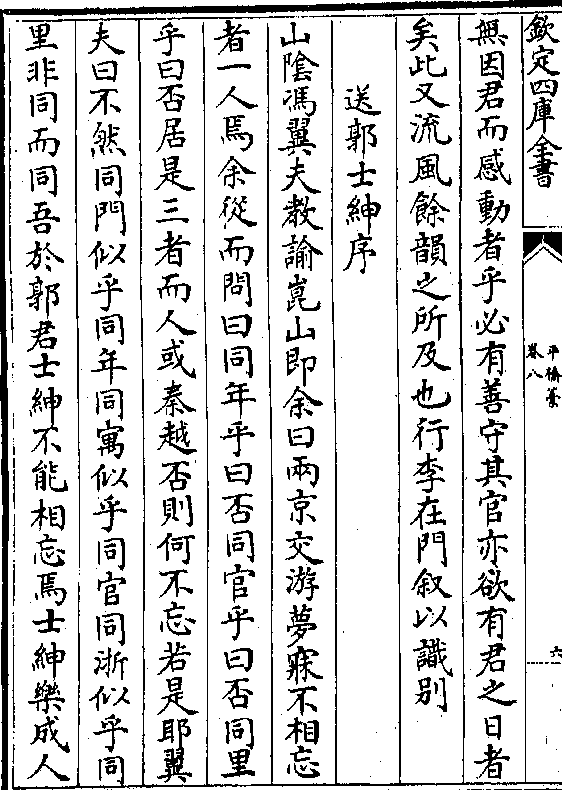 欽定四庫全書
平橋藳
卷八
六
無因君而感動者乎必有善守其官亦欲有君之日者
矣此又流風餘韻之所及也行李在門叙以識别
送郭士紳序
山隂馮翼夫教諭崑山即余曰兩京交游夢寐不相忘
者一人焉余從而問曰同年乎曰否同官乎曰否同里
乎曰否居是三者而人或秦越否則何不忘若是耶翼
夫曰不然同門似乎同年同寓似乎同官同浙似乎同
里非同而同吾於郭君士紳不能相忘焉士紳樂成人